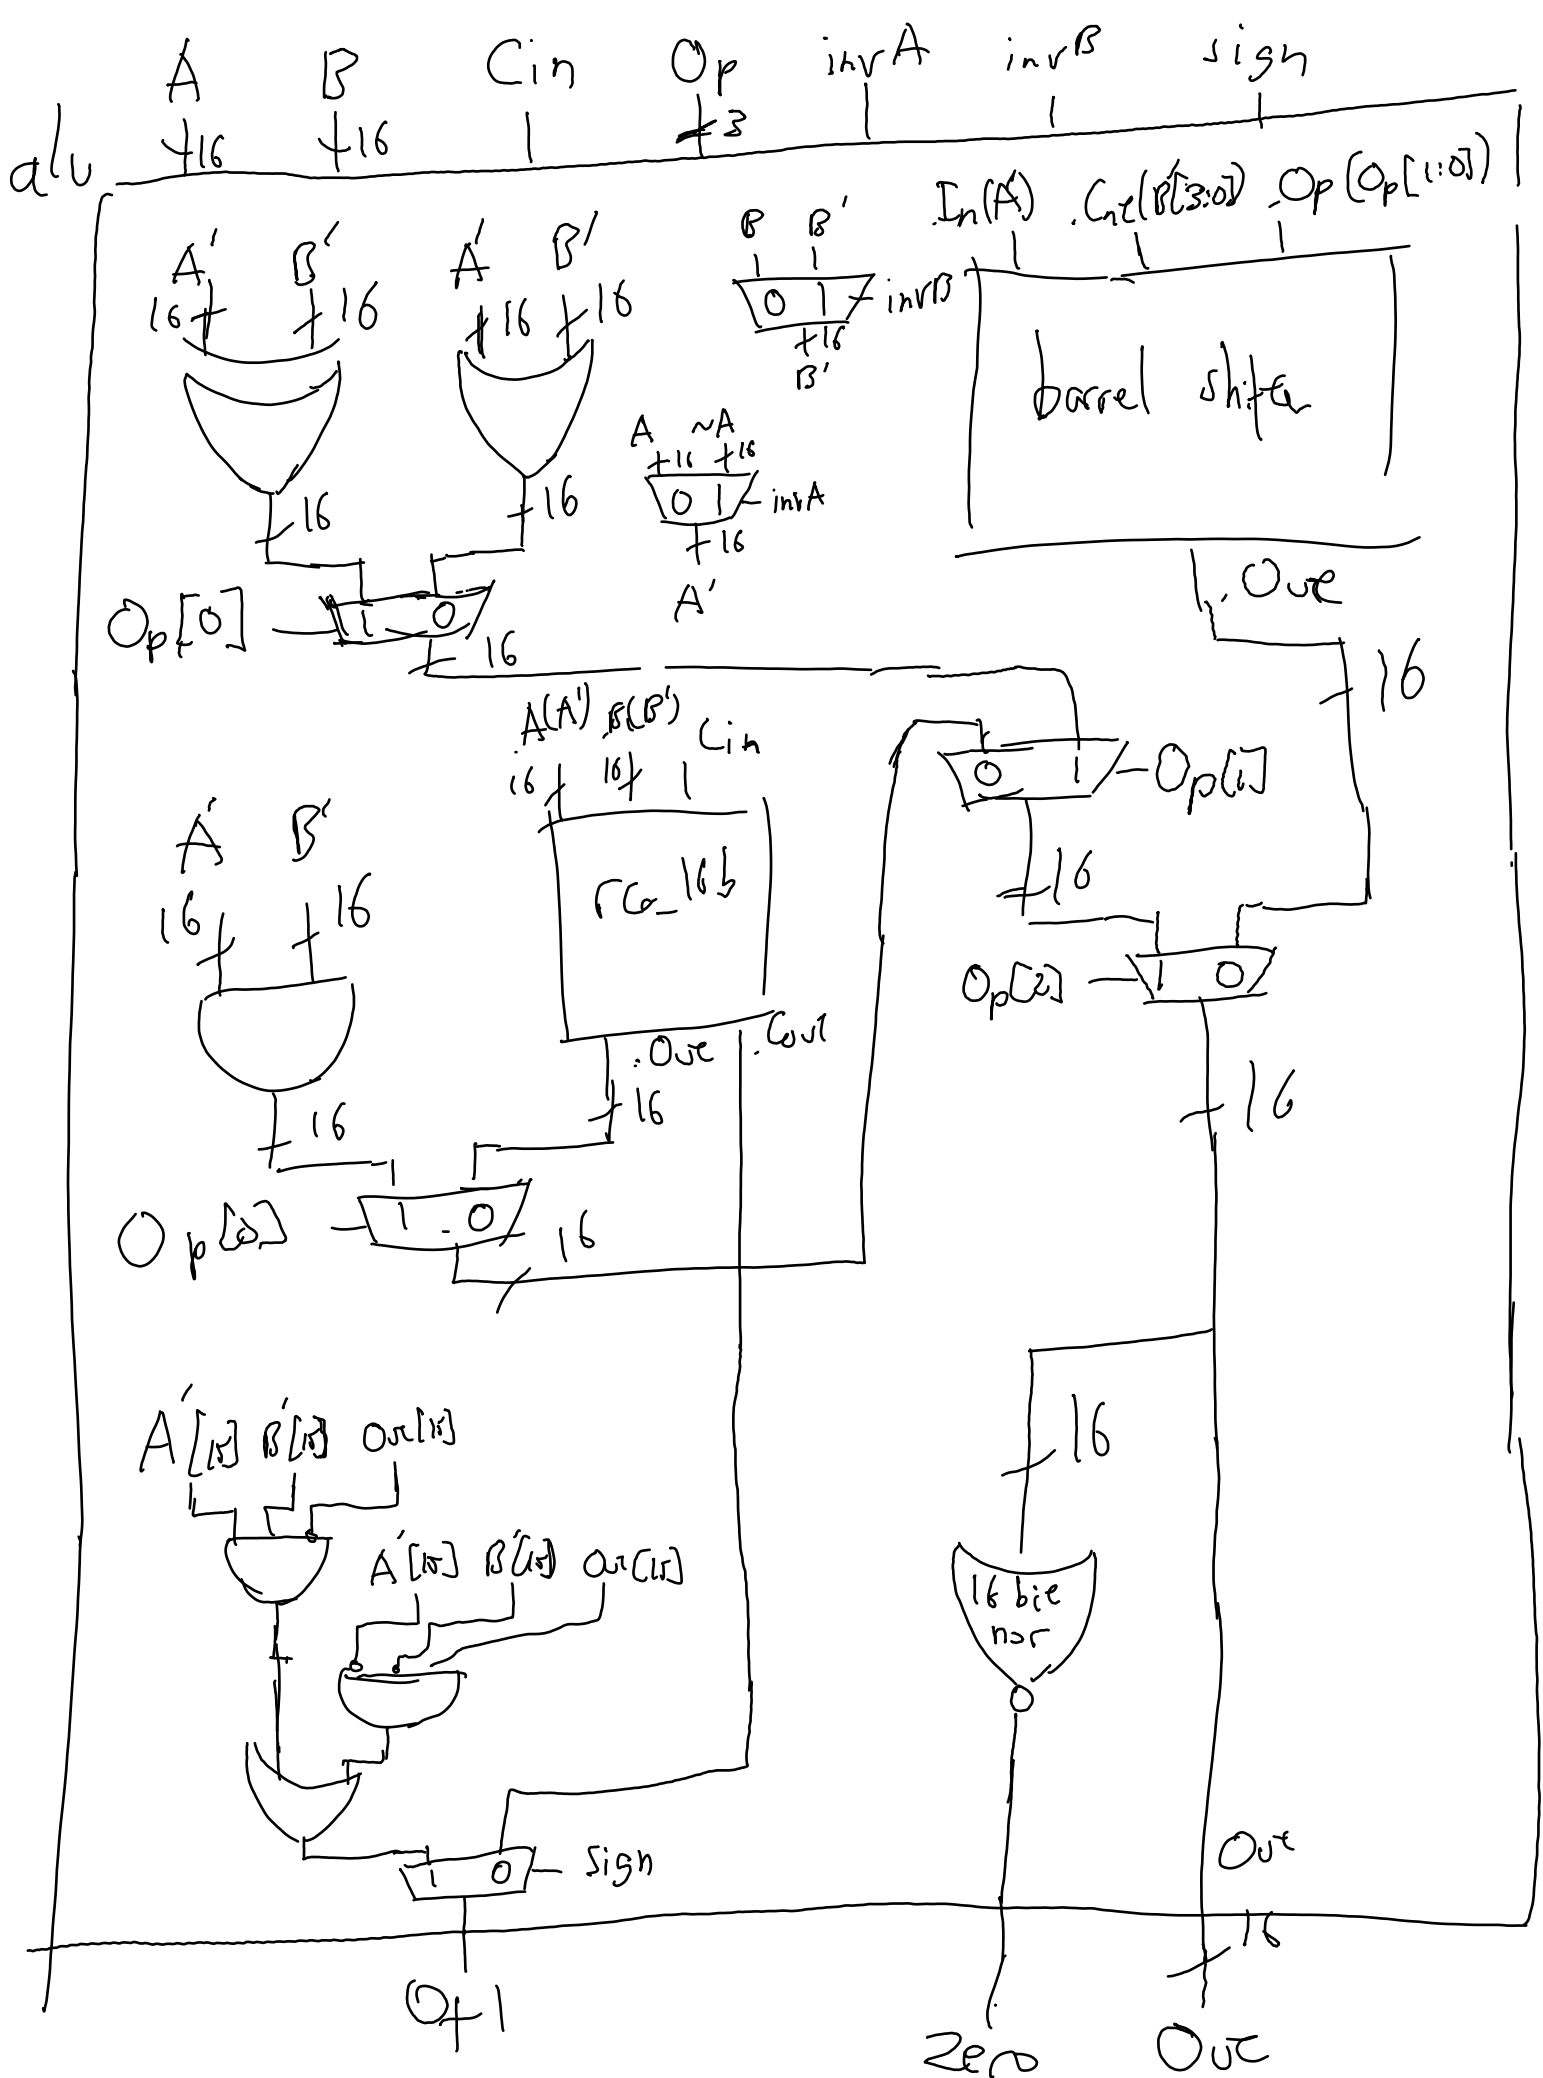 A B Cin Op invA invB sign
alu 16 16 3
In(A') .Cnt(B'[3:0]) .Op(Op[1:0])
A' B' A' B' B B'
16 16 16 16 0 1 invB
16
B'
barrel shifter
A ~A
16 16
16 16 0 1 invA
16
A'
.Out
Op[0] 1 0
16 16
.A(A') .B(B') Cin
16 16 0 1 Op[1]
A' B'
rca_16b 16
16 16
Op[2] 1 0
.Out .Cout
16 16 16
Op[0] 1 0 16
16
A'[15] B'[15] Out[15]
A'[15] B'[15] Out[15]
16 bit
nor
Out
1 0 Sign
16
Ofl
Zero Out